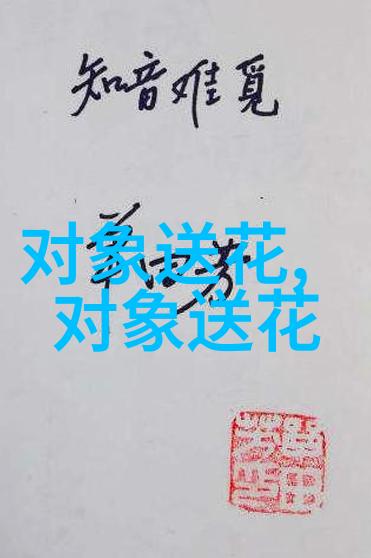 知音难觅
单田芳
对象送花,
对象送花